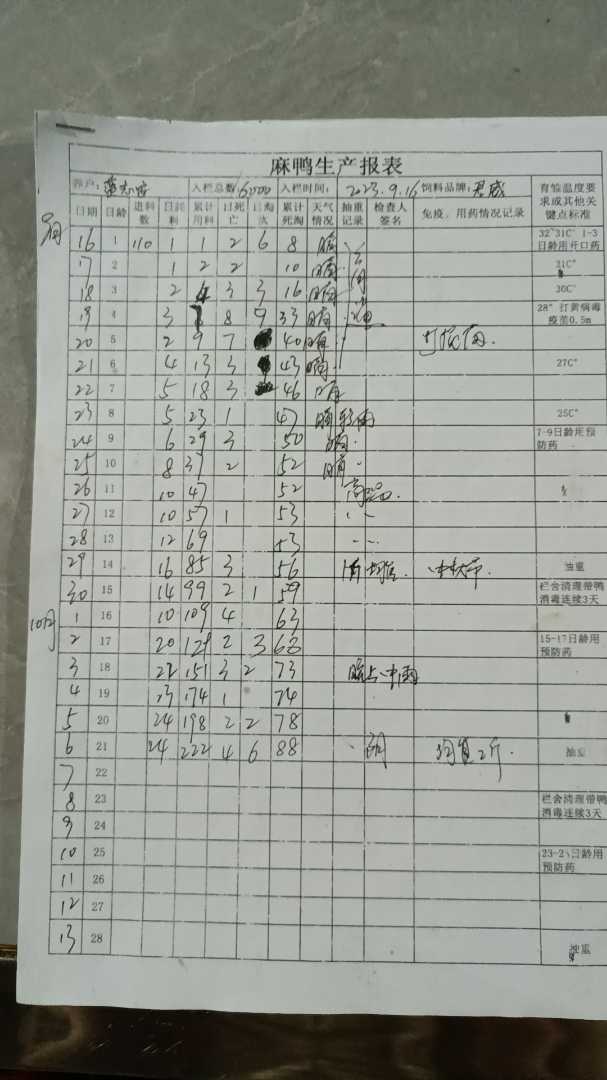 麻鸭生产报表
养户: 入栏总数 6000 入栏时间: 2023.9.16 饲料品牌: 育雏温度要求或其他关键点标准
日期 日龄 进料数 日耗料 累计用料 日死亡 日淘次 累计死淘 天气情况 抽重记录 检查人签名 免疫、用药情况记录
9月
16 1 110 1 1 2 6 8 晴 32~31C° 1-3日龄用开口药
17 2 1 2 2 10 晴 31C°
18 3 2 4 3 3 16 晴 30C°
19 4 3 8 9 33 晴 28° 打黄病毒疫苗0.5m
20 5 2 9 7 40 晴
21 6 4 13 3 43 晴 27C°
22 7 5 18 3 46 晴
23 8 5 23 1 47 晴 25C°
24 9 6 29 3 50 晴 7-9日龄用预防药
25 10 8 37 2 52 晴
26 11 10 47 52 高温
27 12 10 57 1 53
28 13 12 69 53
29 14 16 85 3 56 抽重
30 15 14 99 2 1 59 栏舍清理带鸭消毒连续3天
10月
1 16 10 109 4 63
2 17 20 129 2 3 68 15-17日龄用预防药
3 18 22 151 3 2 73 晚上中雨
4 19 23 174 1 74
5 20 24 198 2 2 78
6 21 24 222 4 6 88 阴 均重2斤 抽重
7 22
8 23 栏舍清理带鸭消毒连续3天
9 24
10 25 日龄用预防药
11 26
12 27
13 28 抽重